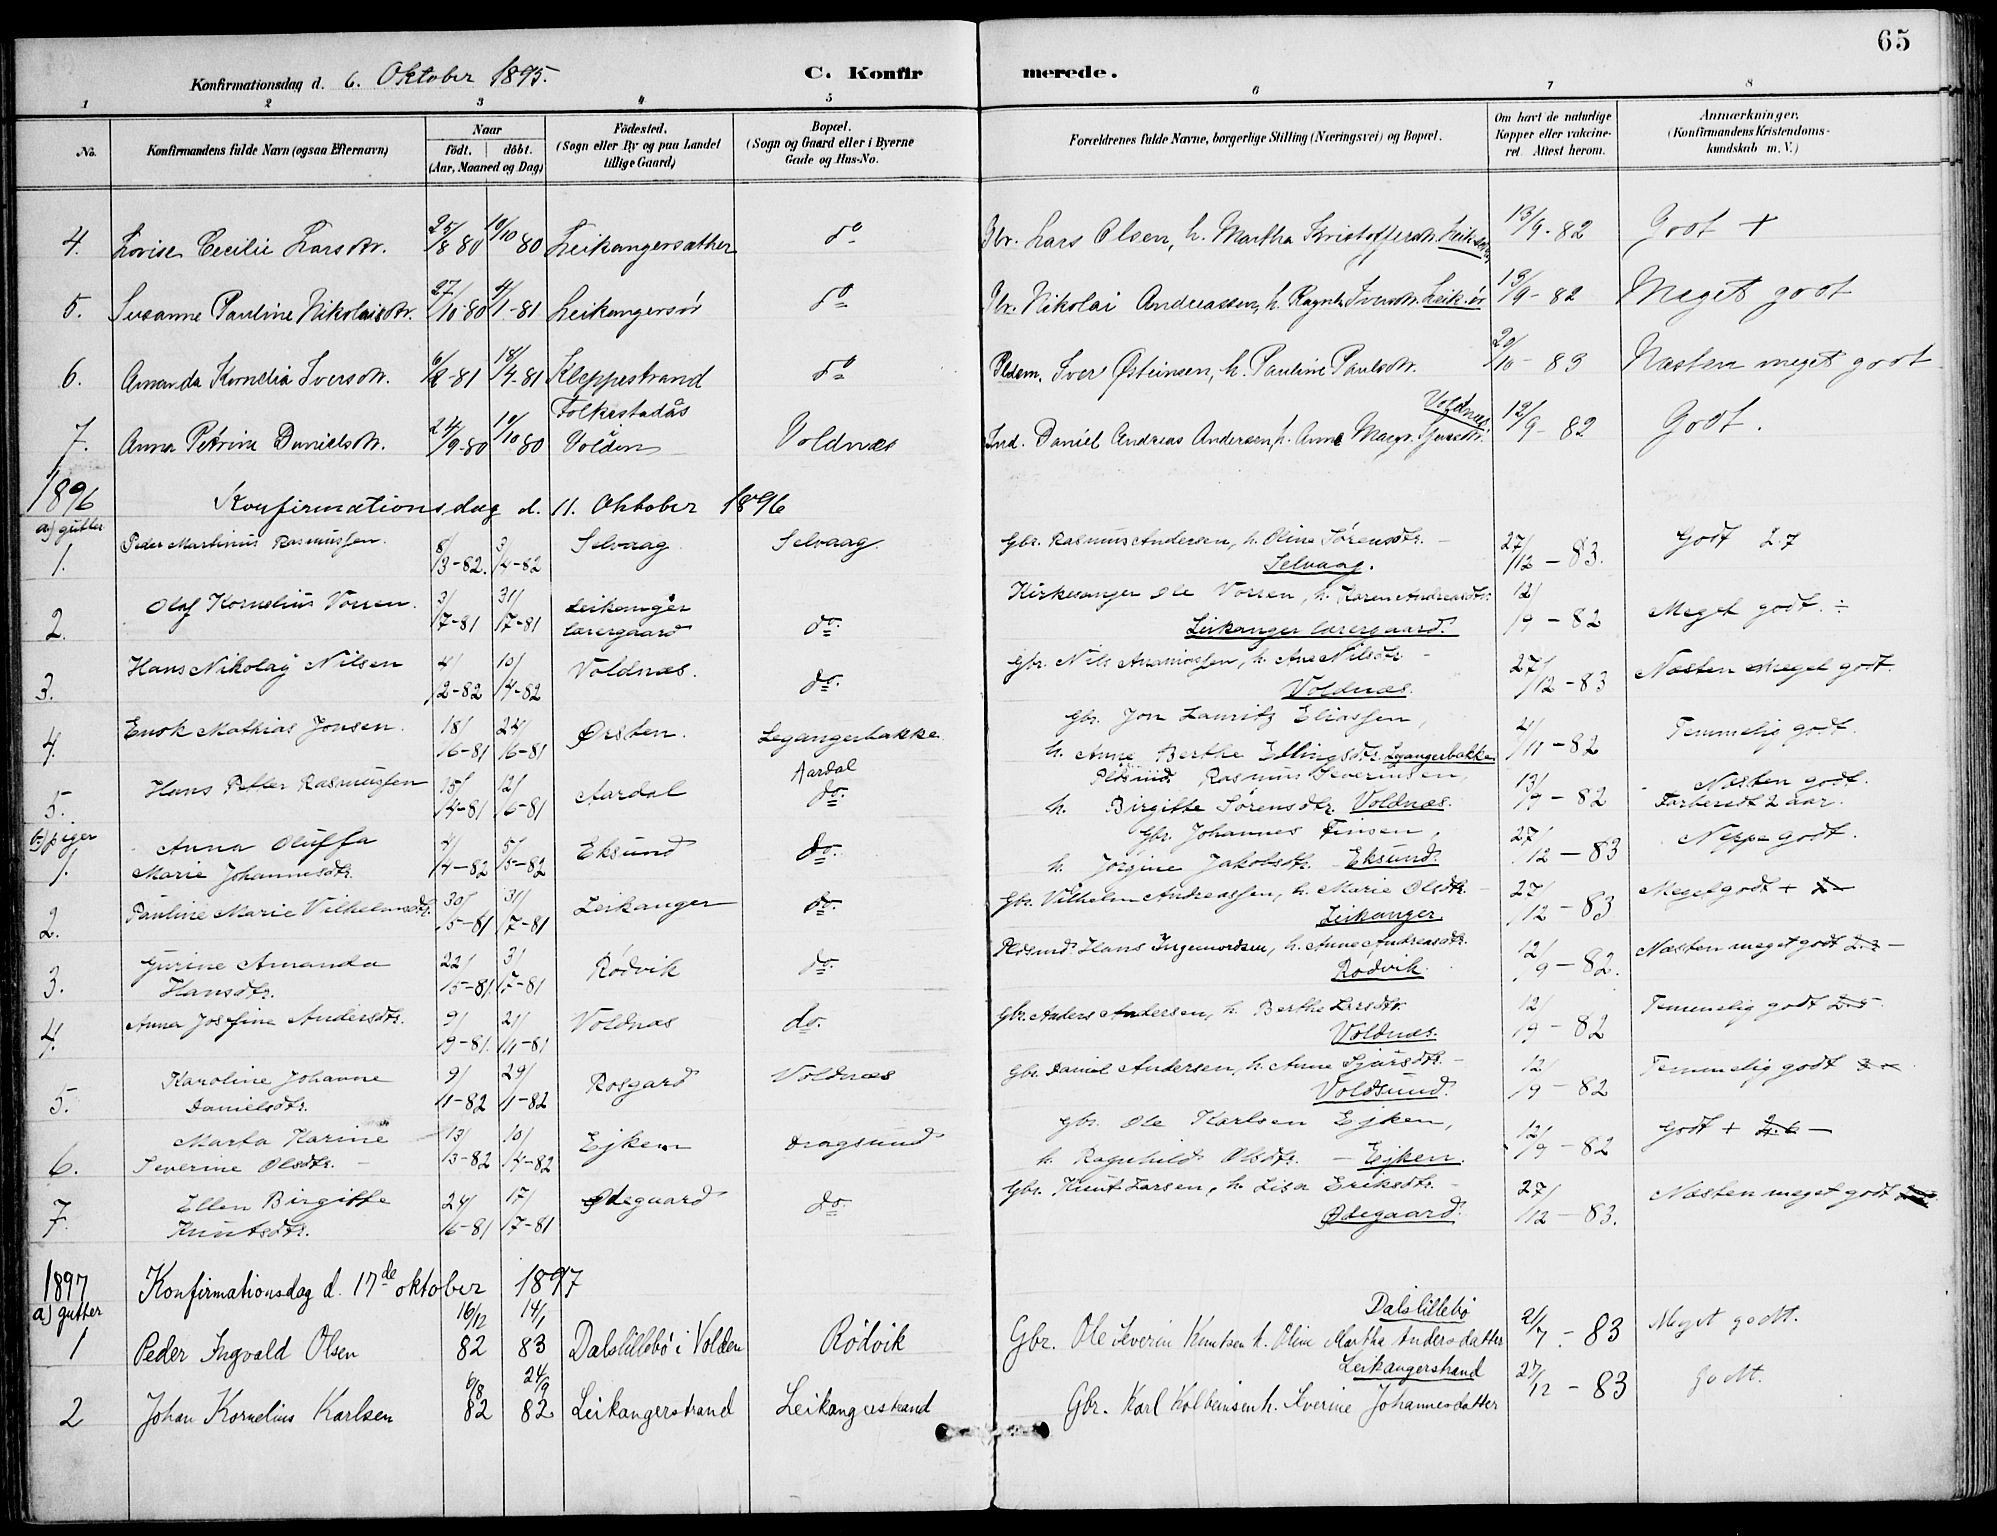 65
Konfirmationsdag d. 6. Oktober 1895.
C. Konfirmerede.
1 2 3 4 5 6 7 8
No.
Konfirmandens fulde Navn (ogsaa Efternavn)
Naar
födt. döbt.
(Aar, Maaned og Dag)
Födested.
(Sogn eller By og paa Landet tillige Gaard)
Bopæl.
(Sogn og Gaard eller i Byerne Gade og Hus-No.
Forældrenes fulde Navne, borgerlige Stilling (Næringsvei) og Bopæl.
Om havt de naturlige Kopper eller vakcineret. Attest herom.
Anmærkninger.
(Konfirmandens Kristendomskundskab m. V.)
4. Lovise Cecilie Larsdtr. 25/8 80 10/10 80 Leikangersæther do Gbr. Lars Olsen, h. Martha Kristoffersdtr. 13/9-82 Godt +
5. Susanne Pauline Nikolaisdtr. 27/10-80 /1-81 Leikangersör do Gbr. Nikolai Andreassen, h. Iversdtr. Leik.ör 13/9-82 Meget godt
6. Amanda Kornelia Iversdtr. -81 18/4-81 Kleppestrand do Iver Østeinsen, h. Pauline Paulsdtr. 20/10-83 Næsten meget godt
7. Anna Petrine Danielsdtr. 24/9-80 10/10-80 Folkestadås Volden Voldnæs Ind. Daniel Andreas Andersen, h. Anne Margr. Voldnæs 12/9-82 Godt.
1896 Konfirmationsdag d. 11. Oktober 1896
a) gutter
1. Peder Martinus Rasmussen. 8/3-82. 3/4-82 Selvaag Selvaag. Gbr. Rasmus Andersen, h. Oline Sørensdtr. - Selvaag. 27/12-83. Godt 2.7
2. Olaf Kornelius Vorren. 3/7-81 31/7-81 Leikanger lærergaard do. Kirkesanger Ole Vorren, h. Karen Andreasdtr: Leikanger lærergaard. 12/9-82 Meget godt. ÷
3. Hans Nikolaj Nilsen 4/2-82 10/4-82 Voldnæs. do. Gbr. Nils Ananiassen, h. Ane Nilsdtr - Voldnæs. 27/12-83 Næsten meget godt.
4. Enok Mathias Jonsen. 18/6-81 24/6-81 Ørsten. Legangerbakke Gbr. Jon Lauritz Eliassen, h. Anne Berthe Ellingsdtr. Legangerbakken 2/11-82 Temmelig godt.
5. Hans Petter Rasmussen 15/4-81 12/6-81 Aardal Aardal do. Rasmus Severinsen, h. Birgitte Sørensdtr. Voldnæs. 13/9-82 Næsten godt. Forberedt 2 aar.
b) piger
1. Anna Oluffa Marie Johannesdtr. 4/4-82 5/5-82 Eksund do. Gbr. Johannes Finsen, h. Jørgine Jakobsdtr. Eksund. 27/12-83 Neppe godt.
2. Pauline Marie Vilhelmsdtr. 30/5-81 31/7-81 Leikanger do. Gbr. Vilhelm Andreassen, h. Marie Olsdtr. - Leikanger. 27/12-83 Meget godt +
3. Gurine Amanda Hansdtr. 22/5-81 3/7-81 Rødvik do. Pldsmd. Hans Ingemordsen, h. Anne Andreasdtr. Rødvik. 12/9-82. Næsten meget godt
4. Anna Josefine Andersdtr. 9/9-81. 21/11-81 Voldnæs do. Gbr. Anders Andersen, h. Berthe Larsdtr. Voldnæs. 12/9-82 Temmelig godt
5. Karoline Johanne Danielsdtr. 9/1-82 29/1-82 Rosgard Voldnæs Gbr. Daniel Andersen, h. Anne Sjursdtr. - Voldsund. 12/9-82 Temmelig godt
6. Marta Karine Severine Olsdtr. - 13/3-82 10/4-82 Ejken Dragsund Gbr. Ole Karlsen Ejken, h. Ragnhild Olsdtr. - Ejken. 12/9-82 Godt +
7. Ellen Birgitte Knutsdtr. 24/6-81 17/7-81 Ødegaard do. Gbr. Knut Larsen, h. Lisa Eriksdtr. - Ødegaard. 27/12-83. Næsten meget godt
1897 Konfirmationsdag d. 17de oktober 1897
a) gutter
1 Peder Ingvald Olsen 16/12 82 14/1 83 Dalslillebø i Volden Rödvik Gbr. Ole Severin Knutsen h. Oline Martha Andersdatter Dalslillebø 21/7-83 Meget godt.
2 Johan Kornelius Karlsen 6/8 82 24/9 82 Leikangerstrand Leikangerstrand Gbr. Karl Kolbeinsen h. Severine Johannesdatter Leikangerstrand 27/12-83 Godt.